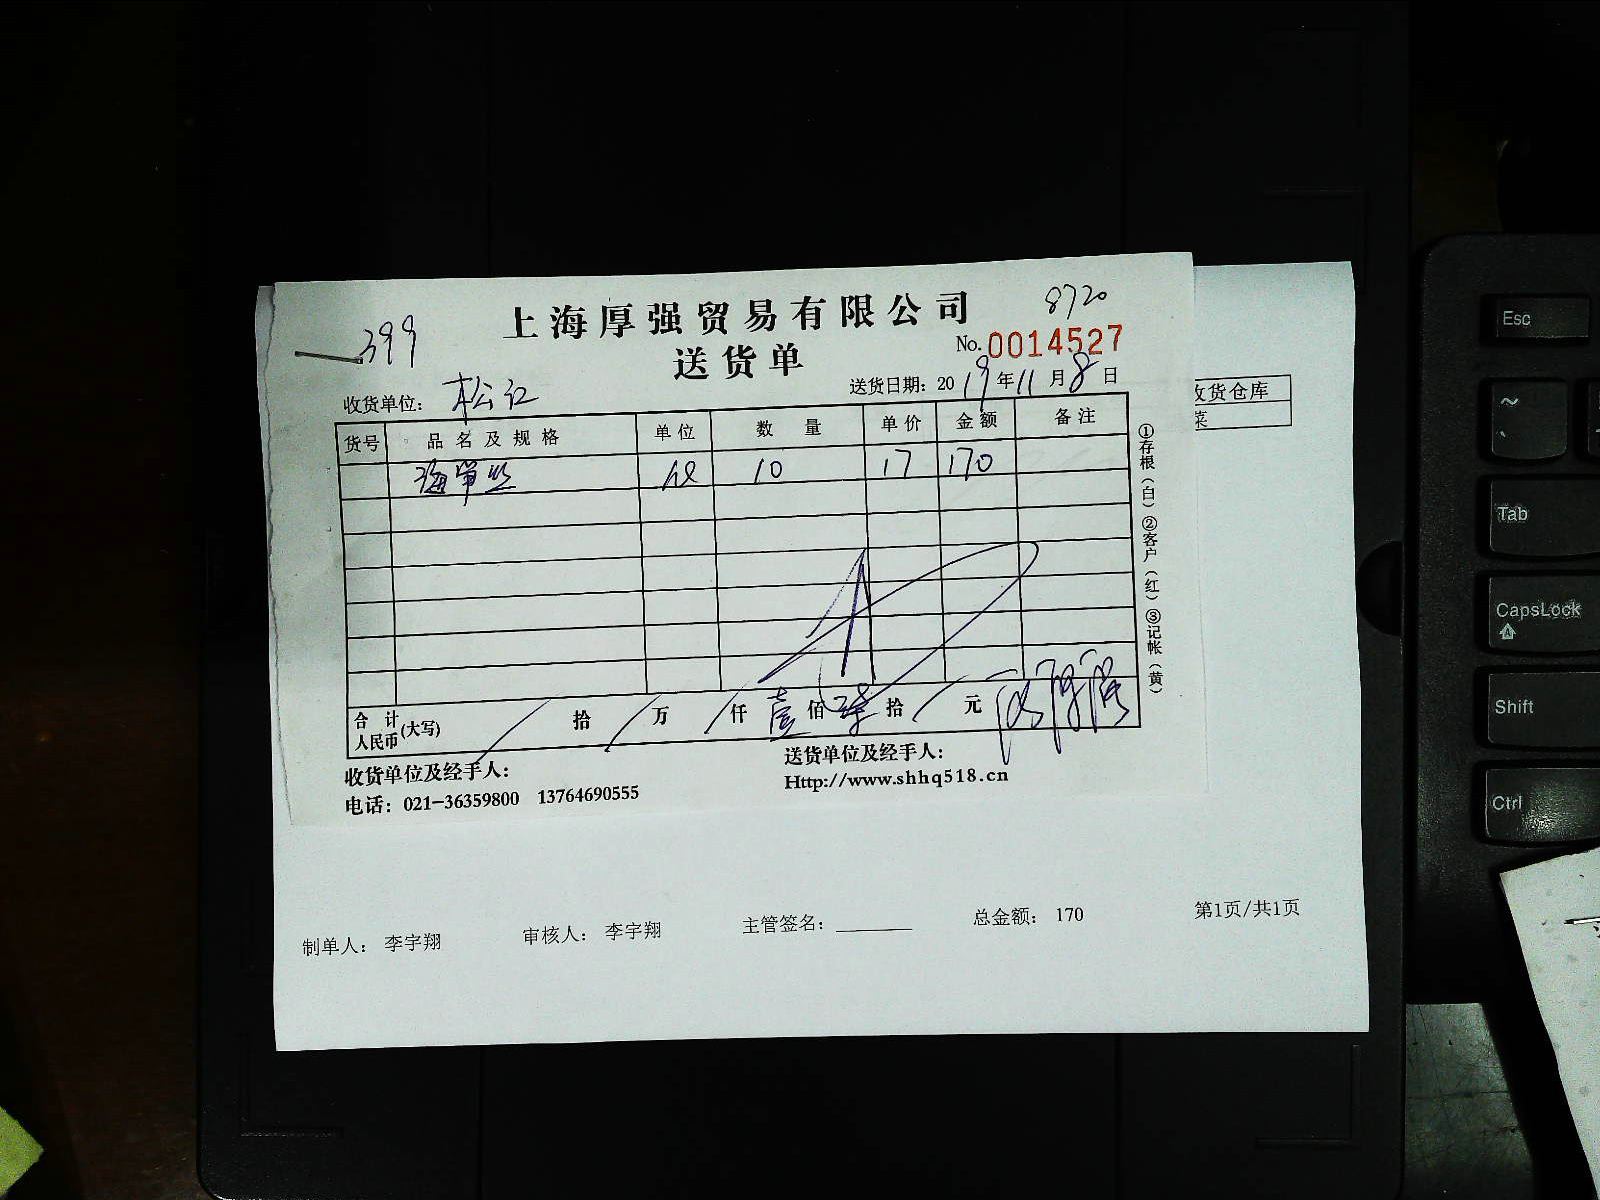 399
8720
上海厚强贸易有限公司
送货单
No. 0014527
收货单位: 松江
送货日期: 2019年11月8日
收货仓库
菜
货号 品名及规格 单位 数量 单价 金额 备注
10 17 170
①存根(白)②客户(红)③记帐(黄)
合计人民币(大写) 拾 万 仟 壹 佰 柒 拾 元
收货单位及经手人:
送货单位及经手人:
电话: 021-36359800 13764690555
Http://www.shhq518.cn
制单人: 李宇翔 审核人: 李宇翔 主管签名: 总金额: 170 第1页/共1页
Esc
~
Tab
CapsLock
Shift
Ctrl